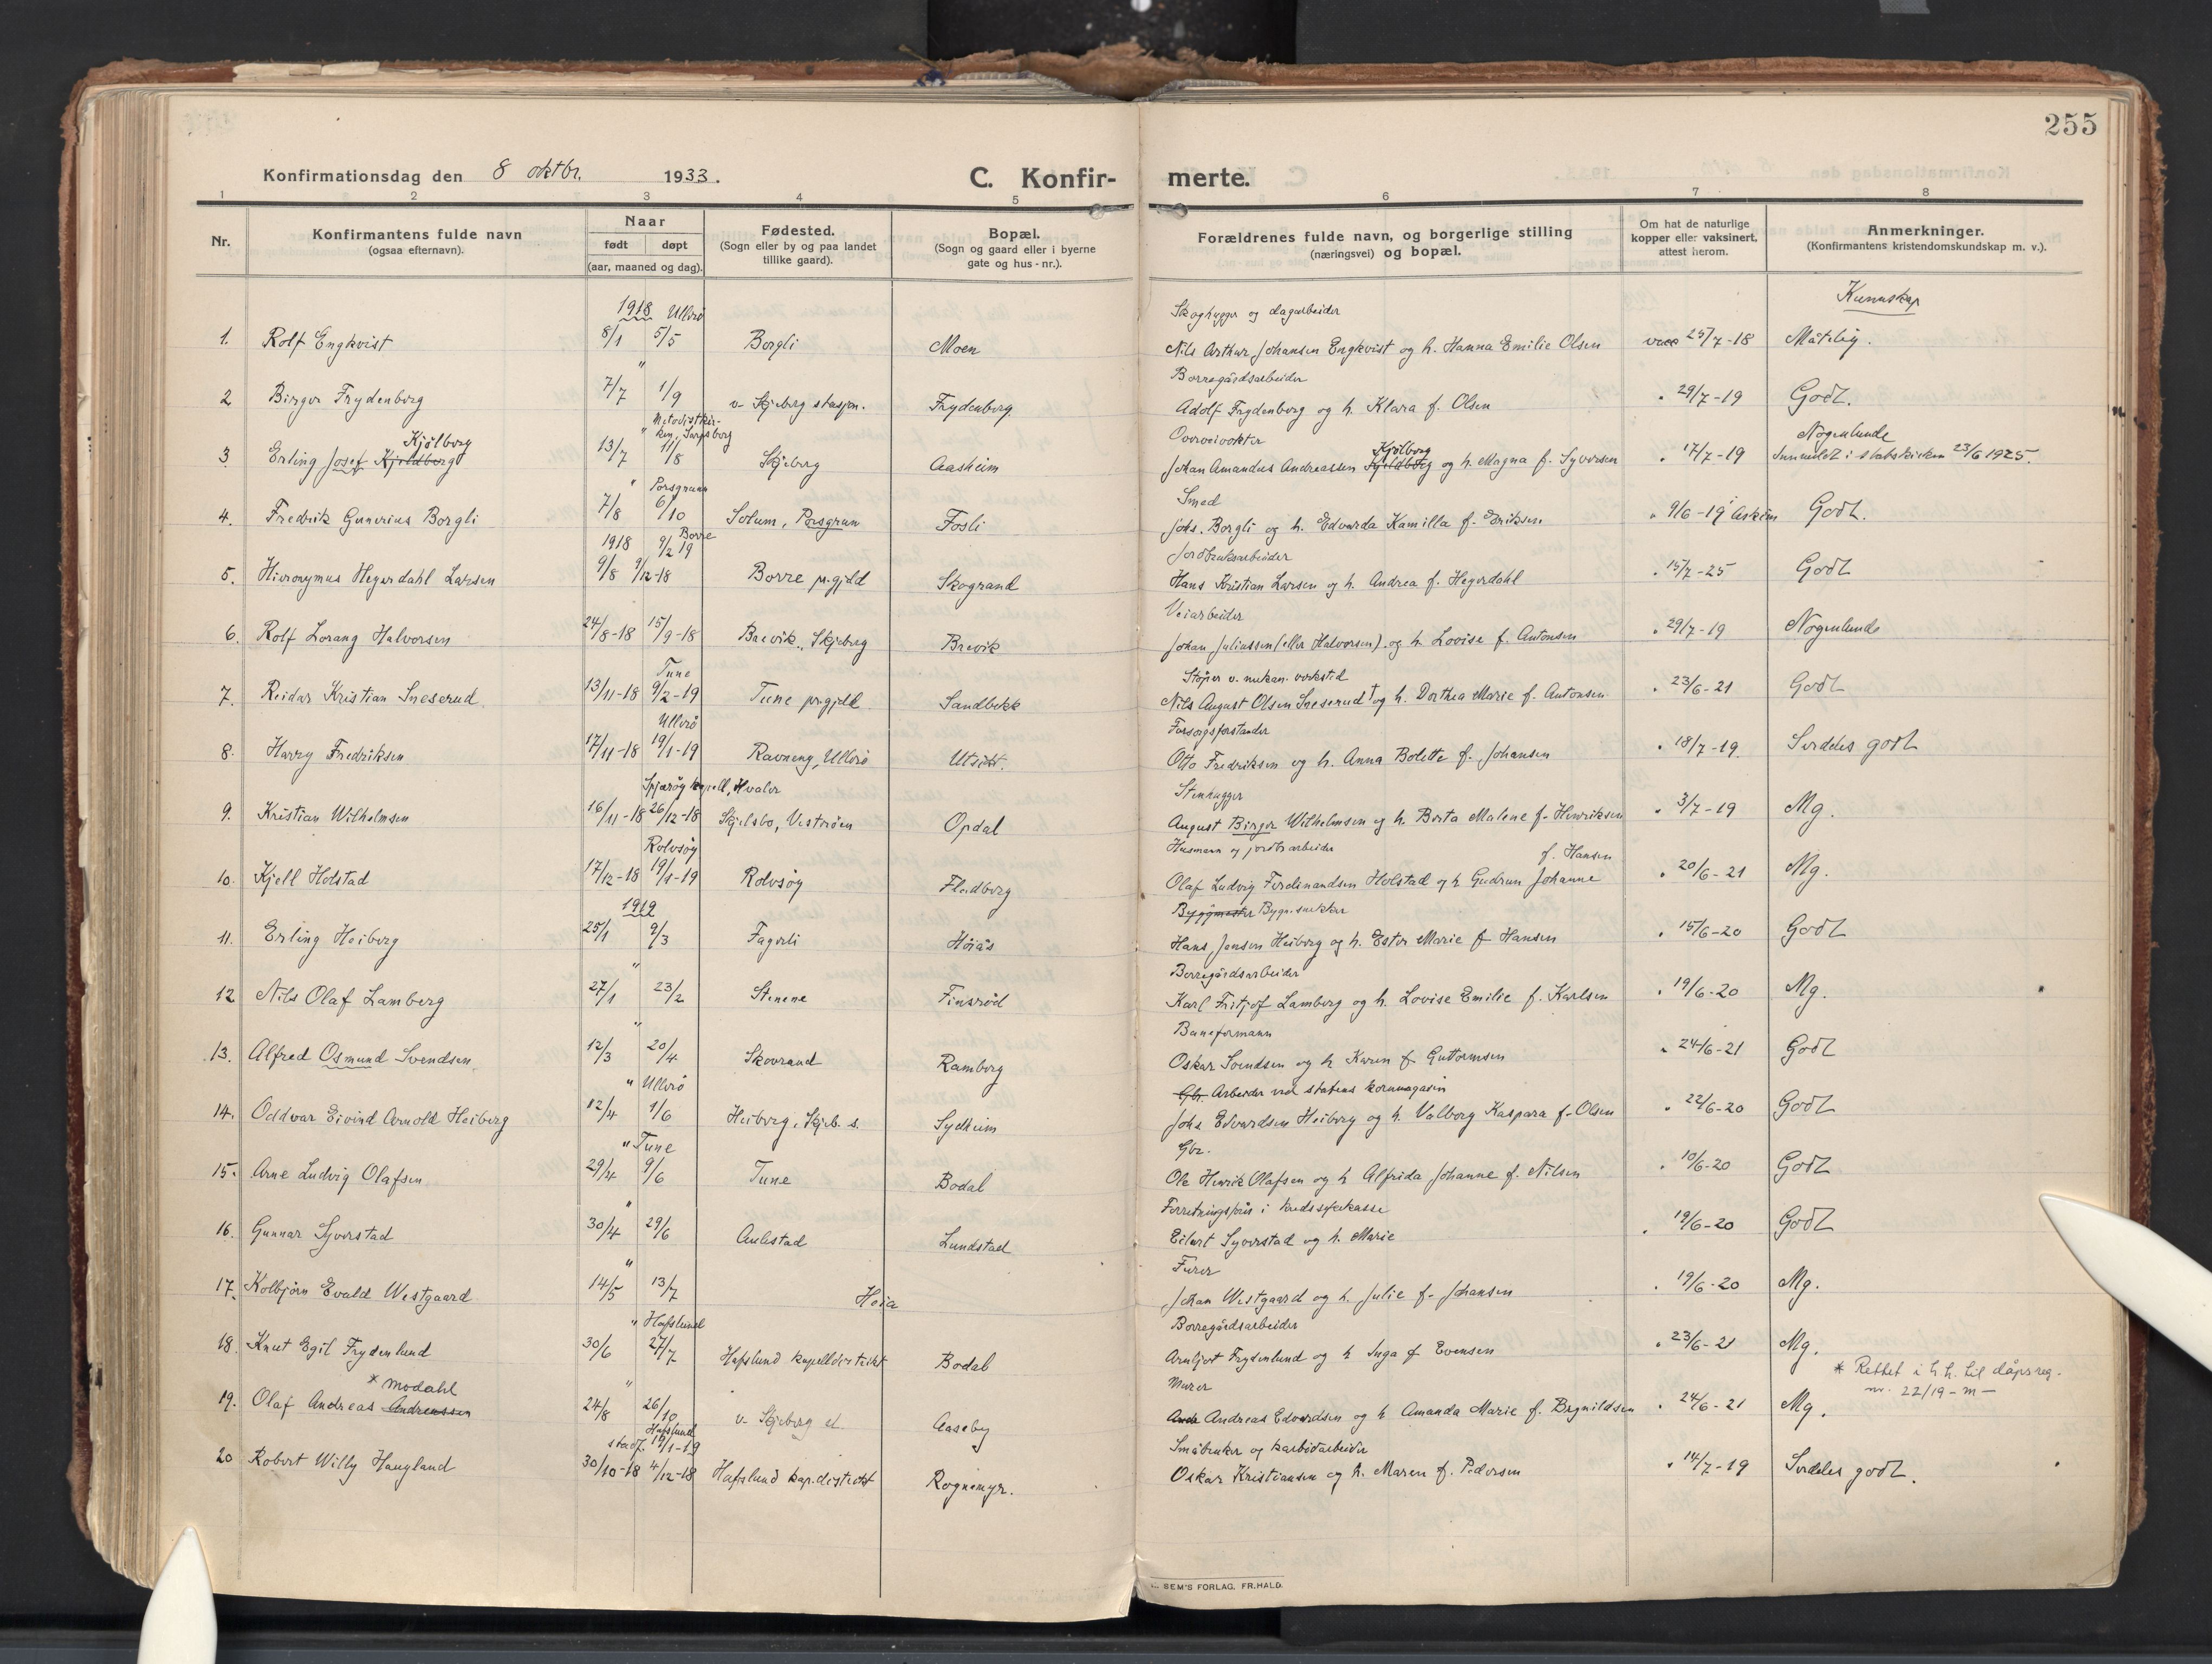 255
Konfirmationsdag den 8 oktbr. 1933. C. Konfir- merte.
1 2 3 4 5 6 7 8
Nr. Konfirmantens fulde navn (ogsaa efternavn). Naar født døpt (aar, maaned og dag). Fødested. (Sogn eller by og paa landet tillike gaard). Bopæl. (Sogn og gaard eller i byerne gate og hus-nr.). Forældrenes fulde navn, og borgerlige stilling (næringsvei) og bopæl. Om hat de naturlige kopper eller vaksinert, attest herom. Anmerkninger. (Konfirmantens kristendomskundskap m. v.).
1918 Ullerø Skoghugger og dagarbeider Kunnskap
1. Rolf Engkvist 8/1 5/5 Borgli Moen Nils Arthur Johansen Engkvist og h. Hanna Emilie Olsen vacc 25/7-18 Måtelig.
" Borregårdsarbeider
2 Birger Frydenberg 7/7 1/9 v. Skjeberg stasjon. Frydenberg. Adolf Frydenberg og h. Klara f. Olsen " 29/7-19 Godt.
Kjølberg " Metodistkirken, Sarpsborg Kjølberg Nogenlunde
3 Erling Josef Kjeldberg 13/7 11/8 Skjeberg Aasheim Johan Amandus Andreassen Kjeldberg og h. Magna f. Syversen " 17/7-19 Innmeldt i statskirken 23/6 1925.
" Porsgrunn Smed
4. Fredrik Gunerius Borgli 7/8 6/10 Solum, Porsgrun Fosli Johs. Borgli og h. Edvarda Kamilla f. Eriksen " 9/6-19 Askim Godt.
1918 9/2 19 Borre Jordbruksarbeider
5. Hieronymus Hegerdahl Larsen 9/8 9/12-18 Borre pr.gjeld Skogrand Hans Kristian Larsen og h. Andrea f. Hegerdahl " 15/7-25 Godt
Veiarbeider
6. Rolf Lorang Halvorsen 24/8-18 15/9-18 Brevik, Skjeberg Brevik Johan Juliussen (eller Halvorsen). og h. Lovise f. Antonsen " 29/7-19 Nogenlunde
Tune Støper v. mekan. verksted
7. Reidar Kristian Sneserud 13/11-18 9/2-19 Tune pr.gjeld Sandbekk Nils August Olsen Sneserud † og h. Dorthea Marie f. Antonsen " 23/6-21 Godt
Ullerø Forsorgsforstander
8. Harry Fredriksen 17/11-18 19/1-19 Ravneng, Ullerø Utsikt. Otto Fredriksen og h. Anna Bolette f. Johansen " 18/7-19. Serdeles godt
Spjærøy kapell, Hvaler Stenhugger
9. Kristian Wilhelmsen 16/11-18 26/12-18 Skjelsbo, Vesterøen Opdal August Birger Wilhelmsen og h. Berta Malene f. Henriksen " 3/7-19 Mg.
Rolvsøy Husmann og jordbr.arbeider f. Hansen
10. Kjell Holstad 17/12-18 19/1-19 Rolvsøy Fladberg Olaf Ludvig Ferdinandsen Holstad og h Gudrun Johanne " 20/6-21 Mg.
1919 Byggmester Bygn.snekker
11. Erling Heiberg 25/1 9/3 Fagerli Høiås Hans Jensen Heiberg og h. Ester Marie f Hansen " 15/6-20 Godt
" Borregårdsarbeider
12 Nils Olaf Lamberg 27/1 23/2 Stenene Finsrød Karl Fritjof Lamberg og h. Lovise Emilie f. Karlsen " 19/6-20 Mg.
" Baneformann
13. Alfred Osmund Svendsen 12/3 20/4 Skovrand Ramberg Oskar Svendsen og h Karen f Guttormsen " 24/6-21 Godt
" Ullerø Gbr. Arbeider ved statens kornmagasin
14. Oddvar Eivind Arnold Heiberg 12/4 1/6 Heiberg, Skjeb. s. Sydheim Johs Edvardsen Heiberg og h. Valborg Kaspara f. Olsen " 22/6-20 Godt
" Tune Gbr.
15. Arne Ludvig Olafsen 29/4 9/6 Tune Bodal Ole Henrik Olafsen og h Alfrida Johanne f. Nilsen " 10/6-20 Godt
"
16. Gunnar Syverstad 30/4 29/6 Aulestad Lundstad Eilert Syverstad og h. Marie " 19/6-20 Godt
" Furer
17. Kolbjørn Evald Westgaard 14/5 13/7 Heia Johan Westgaard og h. Julie f. Johansen " 19/6-20 Mg.
" Hafslund Borregårdsarbeider
18. Knut Egil Frydenlund 30/6 27/7 Hafslund kapelldistrikt Bodal Arnljot Frydenlund og h Inga f Evensen " 23/6-21 Mg.
* Modahl " Murer * Rettet i h.h. til dåpsreg. nr. 22/19 - m -
19. Olaf Andreas Andreassen 24/8 26/10 v. Skjeberg st. Aaseby Andr Andreas Edvardsen og h Amanda Marie f. Brynildsen " 24/6-21 Mg.
Hafslund stadf. 19/1-19 Småbruker og karbidarbeider
20 Robert Willy Haugland 30/10-18 4/12-18 Hafslund kap.distrikt Rognemyr. Oskar Kristiansen og h. Maren f. Pedersen " 14/7-19 Serdeles godt.
SEM'S FORLAG, FR.HALD.